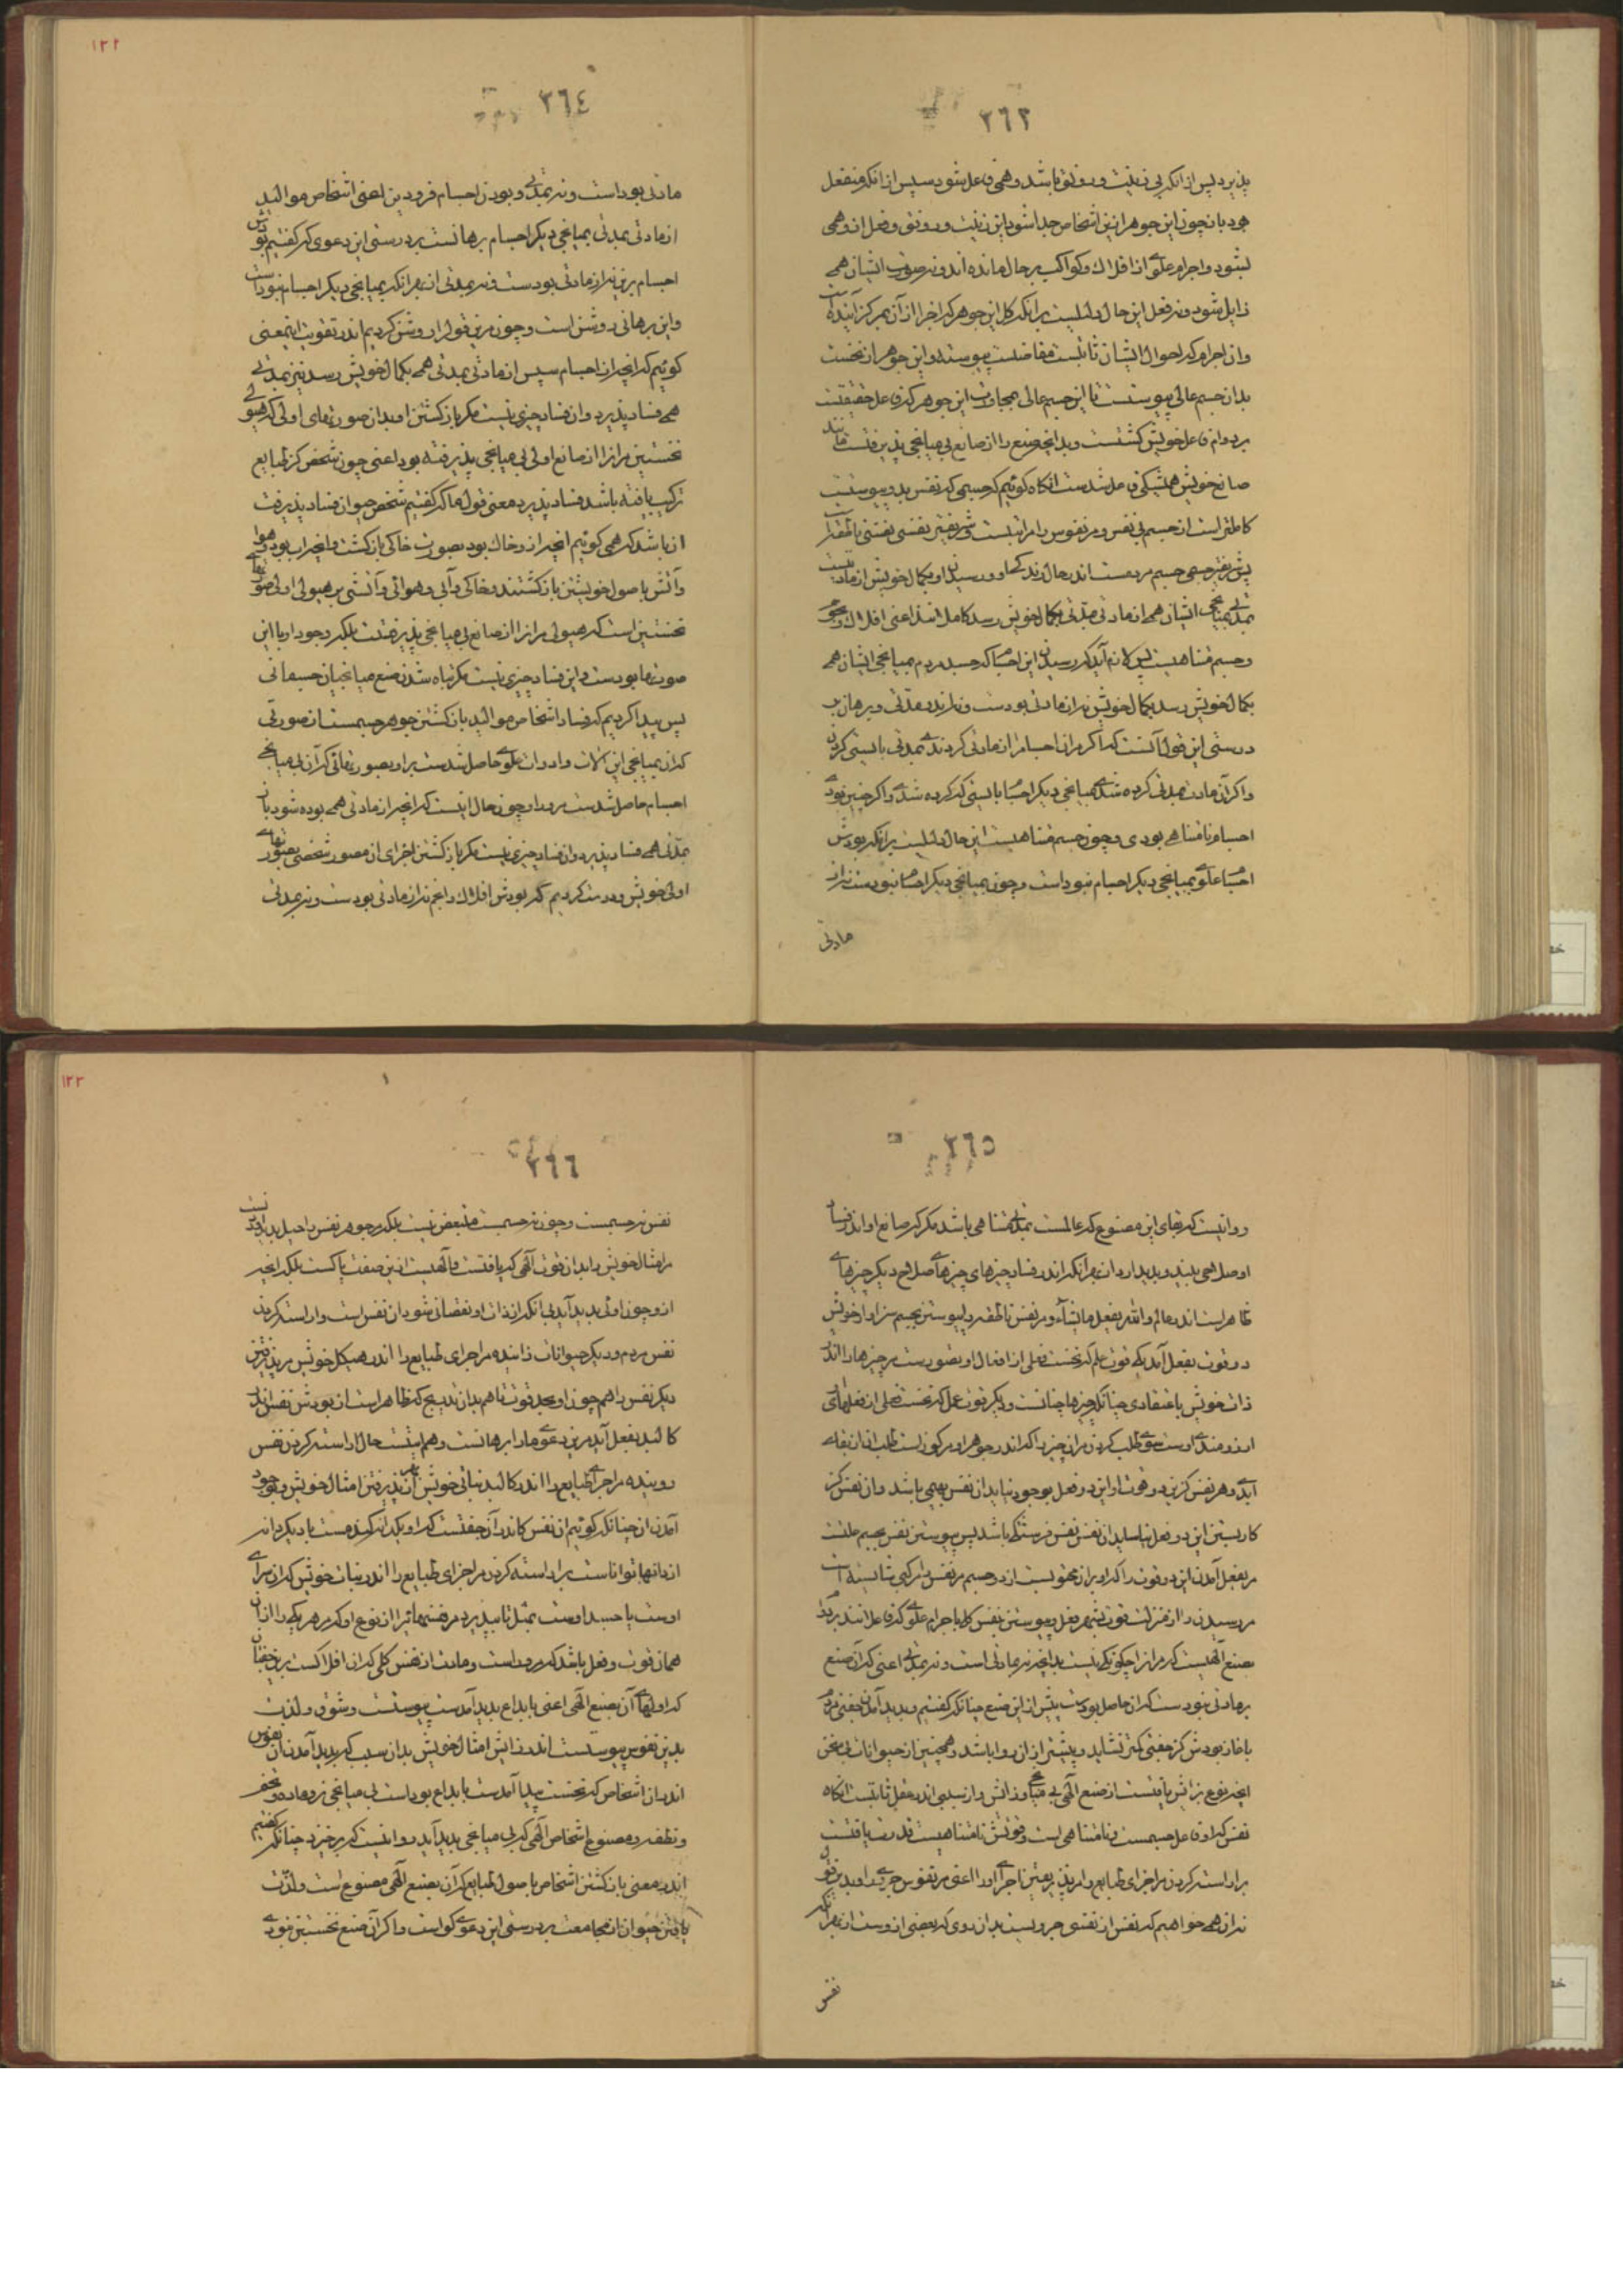 ۳۶۳
پذیرد پس از انکه بی زینت و رونق باشد و همی فاعل شود سپس از انکه منفعل
بود باز چون این جوهر ازین اشخاص جدا شود این زینت و رونق و فعل ازو همی
بشود و اجرام علوی از افلاک و کواکب بر حال مانده اند و نه صورت ایشان همی
زایل شود و نه فعل این حال دلیلست برانکه کل این جوهر که اجزا ازان بمرکز آینده است
وان اجرام که احوال ایشان ثابتست مفاضلت پیوسته و این جوهر از نخست
بدان جسم عالی پیوستست تا این جسم عالی بمجاورت این جوهر کزو فاعل حقیقتست
بر دوام فاعل خویش گشتست و بدانچه صنع را از صانع بی میانجی پذیرفتست مانند
صانع خویش همیشگی فاعل شدست انگاه گوئیم که جسمی که نفس بدو پیوستست
کاملتر است از جسم بی نفس و مر نفوس را مراتبست و شریفتر نفسی نفس ناطقه است
پس شریفتر جسمی جسم مردمست اندر حال زندگی او و رسیدن او بکمال خویش از مادتیست
بمدتی بمیانجی ایشان همی از مادتی بمدتی بکمال خویش رسد کامل اند اعنی افلاک و نجوم
و جسم متناهیست پس لازم آید که رسیدن این اجسام که جسد مردم بمیانجی ایشان همی
بکمال خویش رسد بکمال خویش نه از مادتی بودست و نه اندر مدتی و برهان بر
درستی این قول آنست که اگر مران اجسام را از مادتی کردندی بمدتی بایستی کردن
و اگر آن مادت بمدتی کرده شدی بمیانجی دیگر اجسام بایستی که کرده شدی و اگر چنین بودی
اجسام نامتناهی بودی و چون جسم متناهیست این حال دلیلست برانکه بودش
اجسام علوی بمیانجی دیگر اجسام نبوداست و چون بمیانجی دیگر اجسام نبودست نه از
مادتی
۳۶٤
۱۲۲
مادتی بوداست و نه بمدتی و بودن اجسام فرودین اعنی اشخاص موالید
از مادتی بمدتی بمیانجی دیگر اجسام برهانست بر درستی این دعوی که گفتیم بودش
اجسام برین نه از مادتی بودست و نه بمدتی از بهر انکه بمیانجی دیگر اجسام نبوداست
و این برهانی روشن است و چون مرین قول را روشن کردیم اندر تقویت اینمعنی
گوئیم که انچه از اجسام سپس از مادتی بمدتی همی بکمال خویش رسد نیز بمدتی
همی فساد پذیرد وان فساد چیزی نیست مگر بازگشتن او بدان صورتهای اولی که هیولی
نخستین مرانرا از صانع اولی بی میانجی پذیرفته بود اعنی چون شخص کز طبایع
ترکیب یافته باشد فساد پذیرد معنی قول ما که گفتیم شخص حیوان فساد پذیرفت
ان باشد که همی گوئیم انچه ازو خاک بود بصورت خاکی بازگشت و انچه اب بود و هوا
و آتش باصول خویشتن بازگشتند و خاکی و آبی و هوائی و آتشی بر هیولی اولی صورتهای
نخستین است که هیولی مرانرا از صانع بی میانجی پذیرفتست بلکه وجود او با این
صورتها بودست و این فساد چیزی نیست مگر تباه شدن صنع میانجیان جسمانی
پس پیدا کردیم که فساد اشخاص موالید بازگشتن جوهر جسمست از صورتی
که ان بمیانجی این آلات و ادوات علوی حاصل شدست براو بصورتهائی که آن بی میانجی
اجسام حاصل شدست مرورا و چون حال اینست که انچه از مادتی همی بوده شود بازبان
بمدتی همی فساد پذیرد وان فساد چیزی نیست مگر بازگشتن اجزای ان مصور شخصی بصورتهای
اولی خویش و درست کردیم که بودش افلاک و انجم نه از مادتی بودست و نه بمدتی
۳۶٥
روا نیست که بقای این مصنوع که عالمست بمدتی متناهی باشد مگر که صانع او اندر فساد
او صلاحی بیند و پدید ارد ان بهرانکه اندر فساد چیزهای چیزهای صلاح دیگر چیزهای
ظاهر است اندر عالم والله یفعل ما یشاء و مر نفس ناطقه را پیوستن بجسم سزاوار خویش
دو قوت بفعل آمد یکی قوت علم که نخست فعلی از افعال او تصورست مر چیزها را اندر
ذات خویش باعتقادی چنانکه چیزها چنانست و دیگر قوت عمل که نخست فعلی از فعلهای
ارزومندی اوست سوی طلب کردن مران چیز را که اندر جوهر او مرکوز است طلب ان از بقای
ابدی و هر نفس کزین دو قوت او این دو فعل بوجود نیاید ان نفس بهیمی باشد وان نفس کز
کاربستن این دو فعل نیاساید ان نفس نفس فرشتگی باشد پس پیوستن نفس بجسم علتست
مر بفعل آمدن این دو قوت را که او بران محتویست از دو جسم مر نفس را مرکبی شایسته است
مر رسیدن را از منزلت قوت بشهر فعل و پیوستن نفس کلی باجرام علوی کزو فاعل شدند بر دوام
بصنع الهیست که مرانرا چگونگی نیست بدانچه نه بمادتی است و نه بمدتی اعنی که آن صنع
بر مادتی نبودست که ان حاصل بودست پیش از این صنع چنانکه گفتیم و پدید آمدن جفتی مردم
باغاز بودش کز جفتی کمتر نشاید و بیشتر ازان روا باشد و همچنین از حیوانات بی سخن
انچه نوع بزایش یافتست از صنع الهی بی میانجی و زایش و از سببی اندر عقل ثابتست انگاه
نفس که او فاعل جسمست و نامتناهی است و قوتش نامتناهیست قدرت یافتست
بر اراسته کردن مر اجزای طبایع را مر پذیرفتن اجزای اورا اعنی مر نفوس جزوی را و بدین قول
نه ان همی خواهیم که نفس از نفس جزویست بدان روی که بعضی ازوست از بهر انکه
نفس
۳۶۶
۱۲۳
نفس نه جسمست و چون نه جسمست متبعض نیست بلکه مر جوهر نفس را حیل پدید اوردنست
مر امثال خویش را بدان قوت الهی که یافتست و الهیت ازین صفت پاکست بلکه انچه
ازو چون اوئی پدید آید بی انکه از ذات او نقصان شود ان نفس است و اراسته کردن
نفس مردم و دیگر حیوانات زاینده مر اجزای طبایع را اندر هیکل خویش مر پذیرفتن
دیگر نفس را هم چون او بحد قوت تا هم بدان تدریج که ظاهر است از بودش نفس اندر
کالبد بفعل آید مرین دعوی مارا برهانست و هم اینست حال اراسته کردن نفس
روینده مر اجزای طبایع را اندر کالبد نباتی خویش از بهر پذیرفتن امثال خویش و بوجود
آمدن ان چنانکه گوئیم ان نفس کاندر ان جفتست که او یکدانه گندمست یا دیگر دانه
از دانها توانا ست بر اراسته کردن مر اجزای طبایع را اندر نبات خویش که ان سرای
اوست یا جسد اوست بمثل تا بپذیرد مر قسمهائیرا از نوع او که مر هر یکی را ازان
همان قوت و فعل باشد که مرو راست و مادت از نفس کلی که ان افلاکست برین جفتان
که اولهای آن بصنع الهی اعنی بابداع پدید آمدست پیوستست و شوق و لذت
بدین نفوس پیوستست اندر زایش امثال خویش بدان سبب که پدید آمدن ان نفوس
اندر ان اشخاص که نخست پیدا آمدست بابداع بوداست بی میانجی نر و ماده و تخم
و نطفه و مصنوع اشخاص الهی که بی میانجی پدید آید روا نیست که برخیزد چنانکه گفتیم
اندر معنی بازگشتن اشخاص باصول طبایع که آن بصنع الهی مصنوع است و لذت
یافتن حیوان از مجامعت بر درستی این دعوی گواست و اگر آن صنع نخستین نبودی